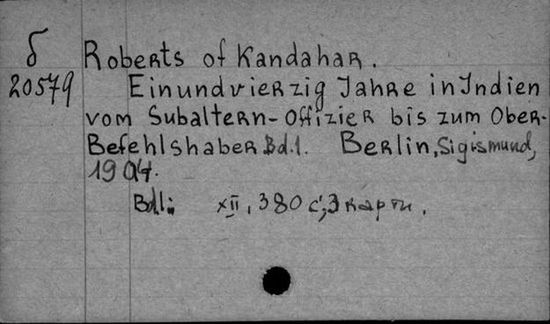 б
20579
Roberts of Kandahar.
Einundvierzig Jahre in Indien
vom Subaltern-Offizier bis zum Ober-
Befehlshaber Bd.1. Berlin, Sigismund,
1904.
Bd.1: XII, 380 с, 3 карты.